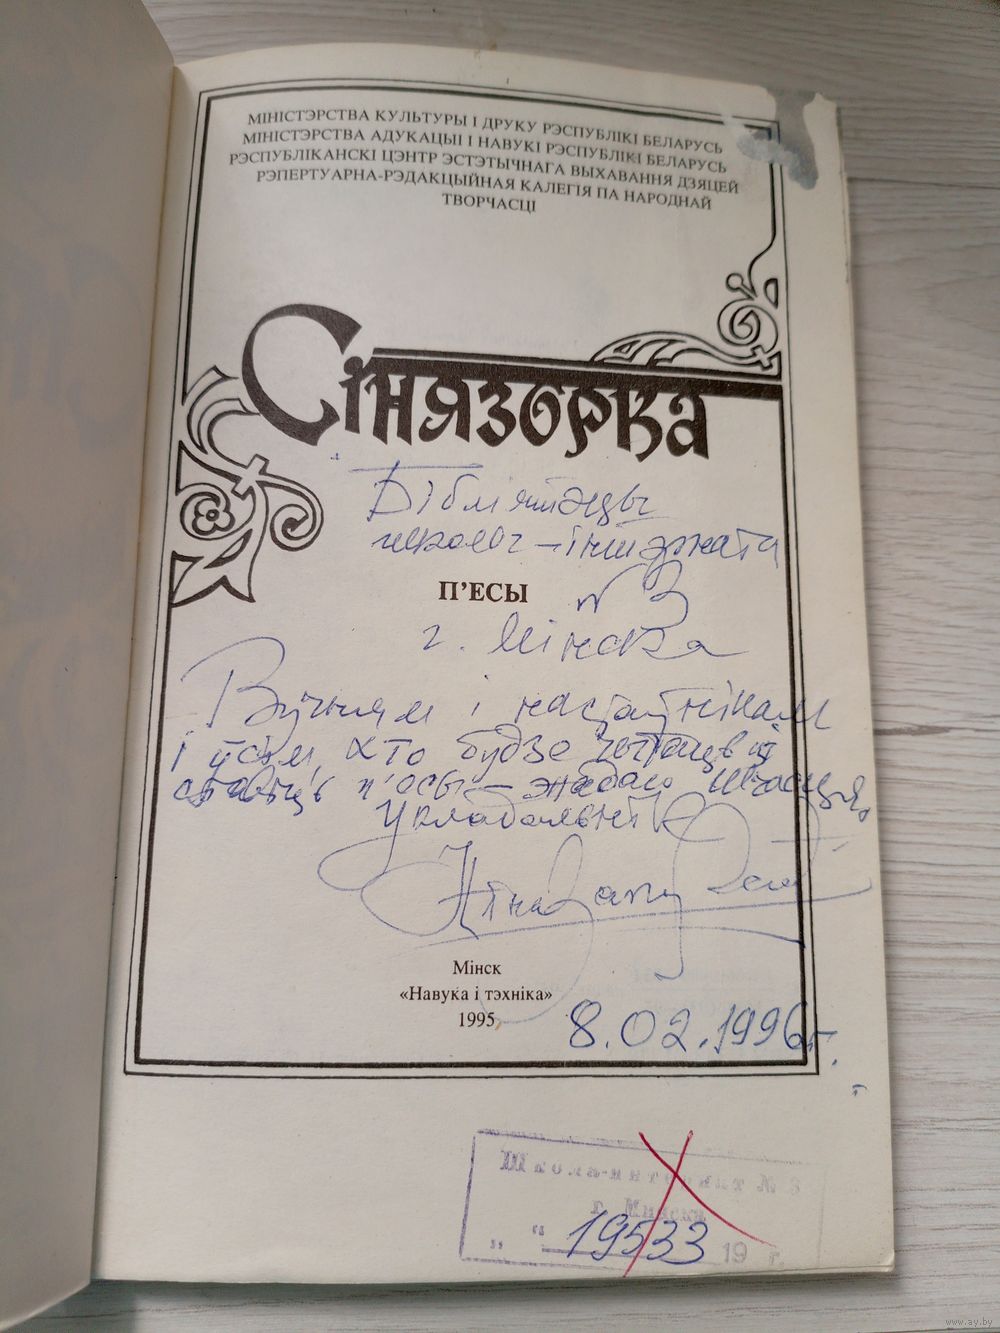 МІНІСТЭРСТВА КУЛЬТУРЫ І ДРУКУ РЭСПУБЛІКІ БЕЛАРУСЬ
МІНІСТЭРСТВА АДУКАЦЫІ І НАВУКІ РЭСПУБЛІКІ БЕЛАРУСЬ
РЭСПУБЛІКАНСКІ ЦЭНТР ЭСТЭТЫЧНАГА ВЫХАВАННЯ ДЗЯЦЕЙ
РЭПЕРТУАРНА-РЭДАКЦЫЙНАЯ КАЛЕГІЯ ПА НАРОДНАЙ
ТВОРЧАСЦІ
Сінязорка
Бібліятэцы
школы-інтэрната
П'ЕСЫ
№ 3
г. Мінска
Вучням і настаўнікам
і ўсім, хто будзе чытаць і
ставіць п'есы – жадаю шчасця,
Укладальнік
Мінск
«Навука і тэхніка»
1995
8.02.1996г.
Школа-интернат № 3
г. Минска
" " 19533 19 г.
www.ay.by